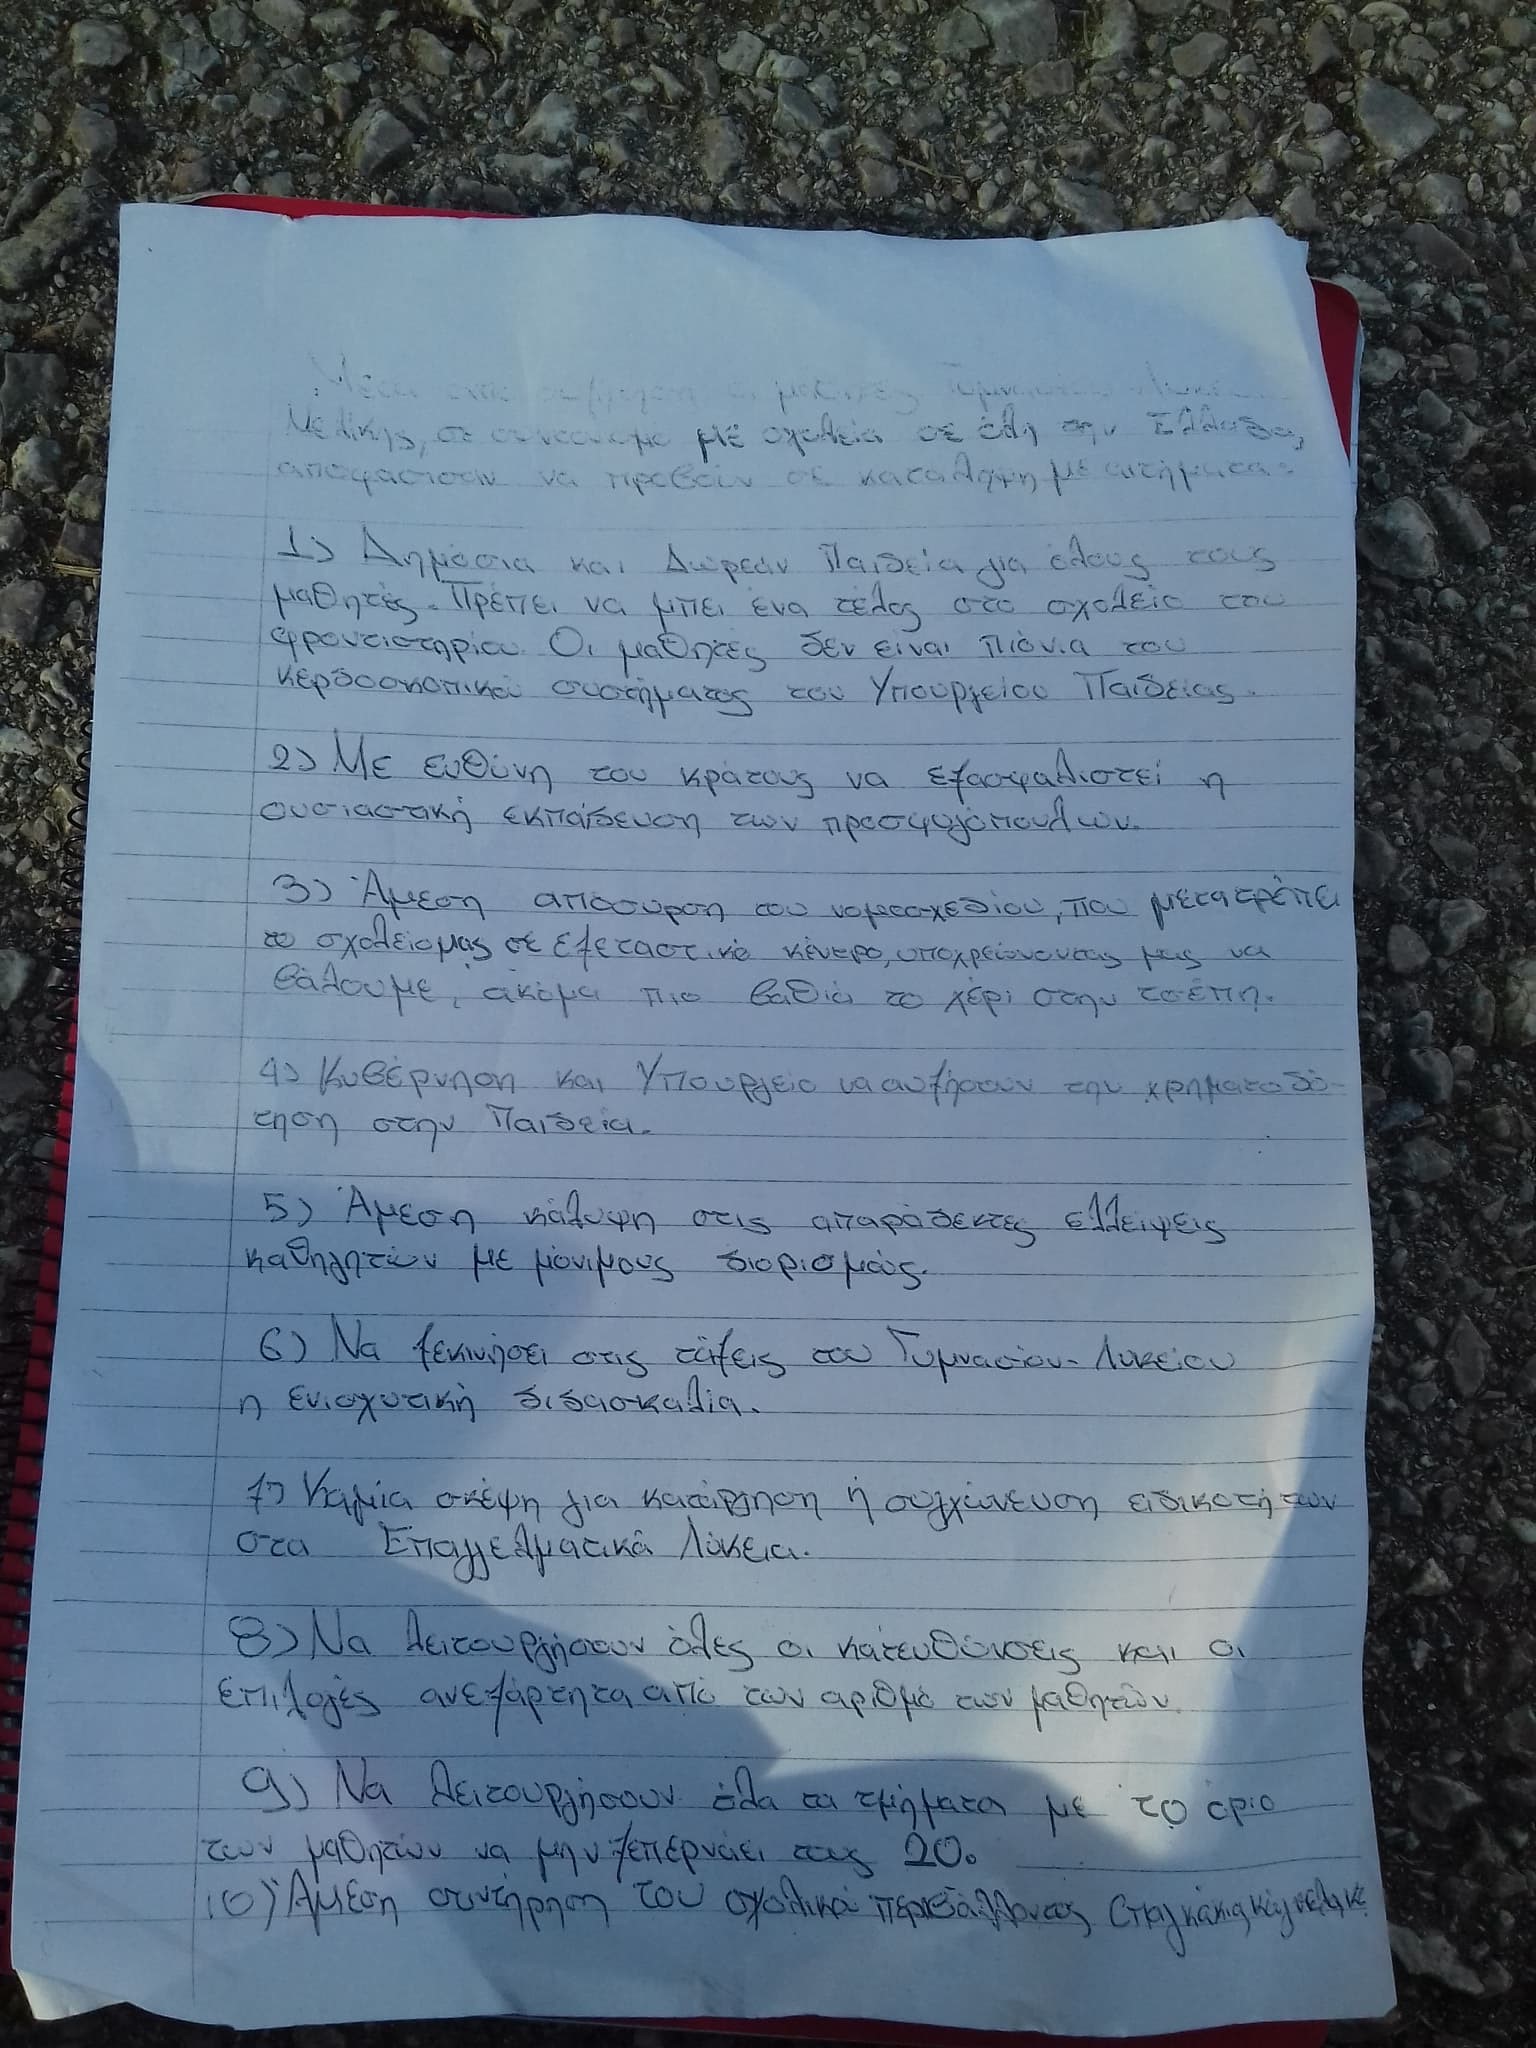 Μετά από συζήτηση οι μαθητές Γυμνασίου Λυκεί
Μελίκης, σε συντονισμό με σχολεία σε όλη την Ελλάδα,
αποφάσισαν να προβούν σε κατάληψη με αιτήματα:
1) Δημόσια και Δωρεάν Παιδεία για όλους τους
μαθητές. Πρέπει να μπει ένα τέλος στο σχολείο του
φροντιστηρίου. Οι μαθητές δεν είναι πιόνια του
κερδοσκοπικού συστήματος του Υπουργείου Παιδείας.
2) Με ευθύνη του κράτους να εξασφαλιστεί η
ουσιαστική εκπαίδευση των προσφυγόπουλων.
3) Άμεση απόσυρση του νομοσχεδίου, που μετατρέπει
το σχολείο μας σε εξεταστικό κέντρο, υποχρεώνοντας μας να
βάλουμε, ακόμα πιο βαθιά το χέρι στην τσέπη.
4) Κυβέρνηση και Υπουργείο να αυξήσουν την χρηματοδό-
τηση στην Παιδεία.
5) Άμεση κάλυψη στις απαράδεκτες ελλείψεις
καθηγητών με μόνιμους διορισμούς.
6) Να ξεκινήσει στις τάξεις του Γυμνασίου-Λυκείου
η ενισχυτική διδασκαλία.
7) Καμία σκέψη για κατάργηση ή συγχώνευση ειδικοτήτων
στα Επαγγελματικά Λύκεια.
8) Να λειτουργήσουν όλες οι κατευθύνσεις και οι
επιλογές ανεξάρτητα από τον αριθμό των μαθητών.
9) Να λειτουργήσουν όλα τα τμήματα με το όριο
των μαθητών να μην ξεπερνάει τους 20.
10) Άμεση συντήρηση του σχολικού περιβάλλοντος